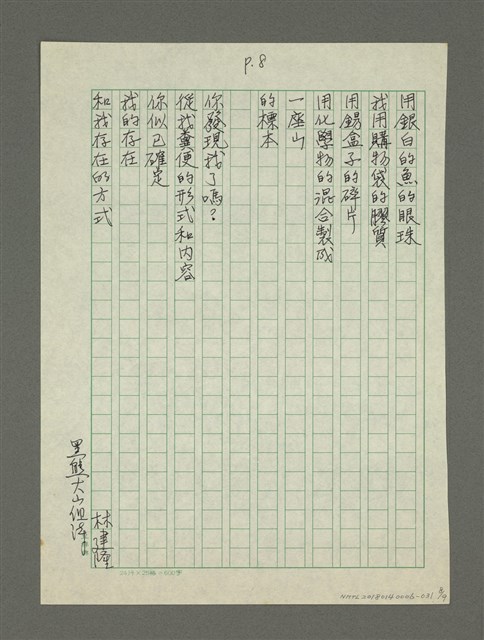 P.8
用銀白的魚的眼珠
我用購物袋的膠質
用錫盒子的碎片
用化學物的混合製成
一座山
的標本
你發現我了嗎？
從我糞便的形式和內容
你似已確定
我的存在
和我存在的方式
林建隆
黑熊大山
NMTL20180140006-031
8/9